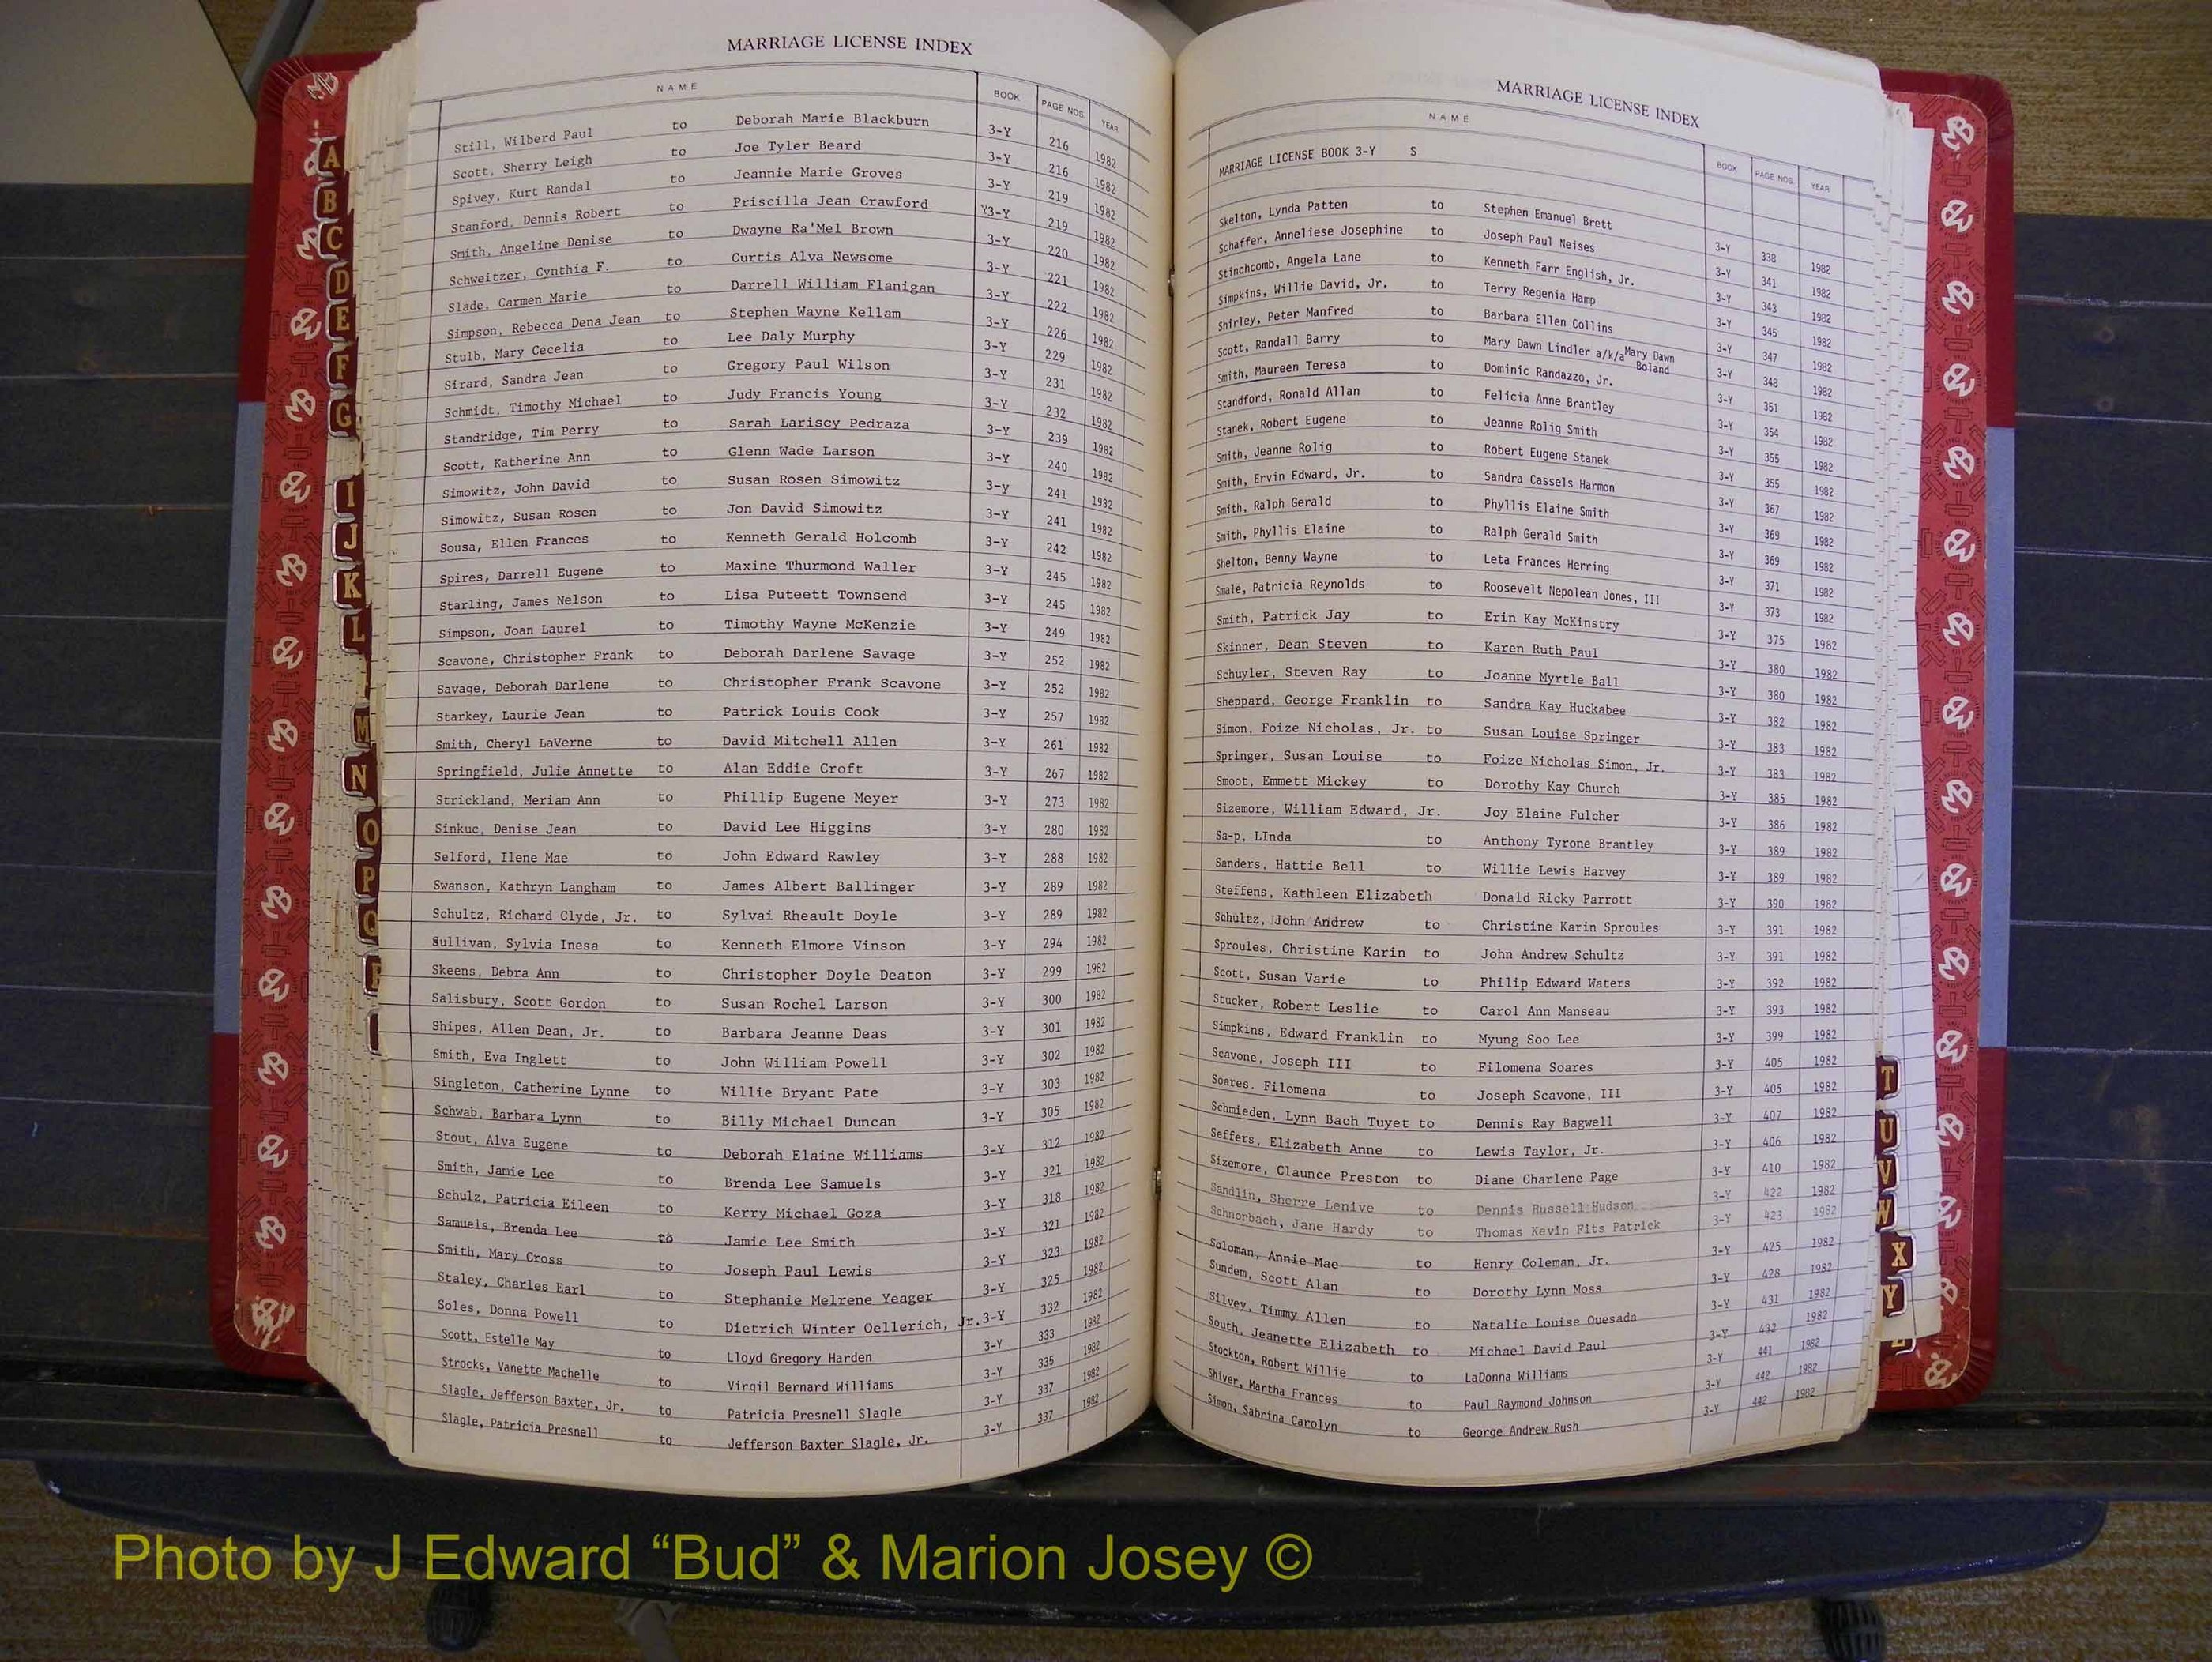 MARRIAGE LICENSE INDEX
NAME BOOK PAGE NOS. YEAR
Still, Wilberd Paul to Deborah Marie Blackburn 3-Y 216 1982
Scott, Sherry Leigh to Joe Tyler Beard 3-Y 216 1982
Spivey, Kurt Randal to Jeannie Marie Groves 3-Y 219 1982
Stanford, Dennis Robert to Priscilla Jean Crawford Y3-Y 219 1982
Smith, Angeline Denise to Dwayne Ra'Mel Brown 3-Y 220 1982
Schweitzer, Cynthia F. to Curtis Alva Newsome 3-Y 221 1982
Slade, Carmen Marie to Darrell William Flanigan 3-Y 222 1982
Simpson, Rebecca Dena Jean to Stephen Wayne Kellam 3-Y 226 1982
Stulb, Mary Cecelia to Lee Daly Murphy 3-Y 229 1982
Sirard, Sandra Jean to Gregory Paul Wilson 3-Y 231 1982
Schmidt, Timothy Michael to Judy Francis Young 3-Y 232 1982
Standridge, Tim Perry to Sarah Lariscy Pedraza 3-Y 239 1982
Scott, Katherine Ann to Glenn Wade Larson 3-Y 240 1982
Simowitz, John David to Susan Rosen Simowitz 3-y 241 1982
Simowitz, Susan Rosen to Jon David Simowitz 3-Y 241 1982
Sousa, Ellen Frances to Kenneth Gerald Holcomb 3-Y 242 1982
Spires, Darrell Eugene to Maxine Thurmond Waller 3-Y 245 1982
Starling, James Nelson to Lisa Puteett Townsend 3-Y 245 1982
Simpson, Joan Laurel to Timothy Wayne McKenzie 3-Y 249 1982
Scavone, Christopher Frank to Deborah Darlene Savage 3-Y 252 1982
Savage, Deborah Darlene to Christopher Frank Scavone 3-Y 252 1982
Starkey, Laurie Jean to Patrick Louis Cook 3-Y 257 1982
Smith, Cheryl LaVerne to David Mitchell Allen 3-Y 261 1982
Springfield, Julie Annette to Alan Eddie Croft 3-Y 267 1982
Strickland, Meriam Ann to Phillip Eugene Meyer 3-Y 273 1982
Sinkuc, Denise Jean to David Lee Higgins 3-Y 280 1982
Selford, Ilene Mae to John Edward Rawley 3-Y 288 1982
Swanson, Kathryn Langham to James Albert Ballinger 3-Y 289 1982
Schultz, Richard Clyde, Jr. to Sylvai Rheault Doyle 3-Y 289 1982
Sullivan, Sylvia Inesa to Kenneth Elmore Vinson 3-Y 294 1982
Skeens, Debra Ann to Christopher Doyle Deaton 3-Y 299 1982
Salisbury, Scott Gordon to Susan Rochel Larson 3-Y 300 1982
Shipes, Allen Dean, Jr. to Barbara Jeanne Deas 3-Y 301 1982
Smith, Eva Inglett to John William Powell 3-Y 302 1982
Singleton, Catherine Lynne to Willie Bryant Pate 3-Y 303 1982
Schwab, Barbara Lynn to Billy Michael Duncan 3-Y 305 1982
Stout, Alva Eugene to Deborah Elaine Williams 3-Y 312 1982
Smith, Jamie Lee to Brenda Lee Samuels 3-Y 321 1982
Schulz, Patricia Eileen to Kerry Michael Goza 3-Y 318 1982
Samuels, Brenda Lee to Jamie Lee Smith 3-Y 321 1982
Smith, Mary Cross to Joseph Paul Lewis 3-Y 323 1982
Staley, Charles Earl to Stephanie Melrene Yeager 3-Y 325 1982
Soles, Donna Powell to Dietrich Winter Oellerich, Jr. 3-Y 332 1982
Scott, Estelle May to Lloyd Gregory Harden 3-Y 333 1982
Strocks, Vanette Machelle to Virgil Bernard Williams 3-Y 335 1982
Slagle, Jefferson Baxter, Jr. to Patricia Presnell Slagle 3-Y 337 1982
Slagle, Patricia Presnell to Jefferson Baxter Slagle, Jr. 3-Y 337 1982
MARRIAGE LICENSE INDEX
NAME BOOK PAGE NOS. YEAR
MARRIAGE LICENSE BOOK 3-Y S
Skelton, Lynda Patten to Stephen Emanuel Brett 3-Y 338 1982
Schaffer, Anneliese Josephine to Joseph Paul Neises 3-Y 341 1982
Stinchcomb, Angela Lane to Kenneth Farr English, Jr. 3-Y 343 1982
Simpkins, Willie David, Jr. to Terry Regenia Hamp 3-Y 345 1982
Shirley, Peter Manfred to Barbara Ellen Collins 3-Y 347 1982
Scott, Randall Barry to Mary Dawn Lindler a/k/a Mary Dawn Boland 3-Y 348 1982
Smith, Maureen Teresa to Dominic Randazzo, Jr. 3-Y 351 1982
Standford, Ronald Allan to Felicia Anne Brantley 3-Y 354 1982
Stanek, Robert Eugene to Jeanne Rolig Smith 3-Y 355 1982
Smith, Jeanne Rolig to Robert Eugene Stanek 3-Y 355 1982
Smith, Ervin Edward, Jr. to Sandra Cassels Harmon 3-Y 367 1982
Smith, Ralph Gerald to Phyllis Elaine Smith 3-Y 369 1982
Smith, Phyllis Elaine to Ralph Gerald Smith 3-Y 369 1982
Shelton, Benny Wayne to Leta Frances Herring 3-Y 371 1982
Smale, Patricia Reynolds to Roosevelt Nepolean Jones, III 3-Y 373 1982
Smith, Patrick Jay to Erin Kay McKinstry 3-Y 375 1982
Skinner, Dean Steven to Karen Ruth Paul 3-Y 380 1982
Schuyler, Steven Ray to Joanne Myrtle Ball 3-Y 380 1982
Sheppard, George Franklin to Sandra Kay Huckabee 3-Y 382 1982
Simon, Foize Nicholas, Jr. to Susan Louise Springer 3-Y 383 1982
Springer, Susan Louise to Foize Nicholas Simon, Jr. 3-Y 383 1982
Smoot, Emmett Mickey to Dorothy Kay Church 3-Y 385 1982
Sizemore, William Edward, Jr. Joy Elaine Fulcher 3-Y 386 1982
Sa-p, LInda to Anthony Tyrone Brantley 3-Y 389 1982
Sanders, Hattie Bell to Willie Lewis Harvey 3-Y 389 1982
Steffens, Kathleen Elizabeth Donald Ricky Parrott 3-Y 390 1982
Schultz, John Andrew to Christine Karin Sproules 3-Y 391 1982
Sproules, Christine Karin to John Andrew Schultz 3-Y 391 1982
Scott, Susan Varie to Philip Edward Waters 3-Y 392 1982
Stucker, Robert Leslie to Carol Ann Manseau 3-Y 393 1982
Simpkins, Edward Franklin to Myung Soo Lee 3-Y 399 1982
Scavone, Joseph III to Filomena Soares 3-Y 405 1982
Soares. Filomena to Joseph Scavone, III 3-Y 405 1982
Schmieden, Lynn Bach Tuyet to Dennis Ray Bagwell 3-Y 407 1982
Seffers, Elizabeth Anne to Lewis Taylor, Jr. 3-Y 406 1982
Sizemore, Claunce Preston to Diane Charlene Page 3-Y 410 1982
Sandlin, Sherre Lenive to Dennis Russell Hudson 3-Y 422 1982
Schnorbach, Jane Hardy to Thomas Kevin Fits Patrick 3-Y 423 1982
Soloman, Annie Mae to Henry Coleman, Jr. 3-Y 425 1982
Sundem, Scott Alan to Dorothy Lynn Moss 3-Y 428 1982
Silvey, Timmy Allen to Natalie Louise Quesada 3-Y 431 1982
South, Jeanette Elizabeth to Michael David Paul 3-Y 432 1982
Stockton, Robert Willie to LaDonna Williams 3-Y 441 1982
Shiver, Martha Frances to Paul Raymond Johnson 3-Y 442 1982
Simon, Sabrina Carolyn to George Andrew Rush 3-Y 442 1982
A
B
C
D
E
F
G
I
J
K
L
M
N
O
P
Q
T
U
V
W
X
Y
Photo by J Edward “Bud” & Marion Josey ©